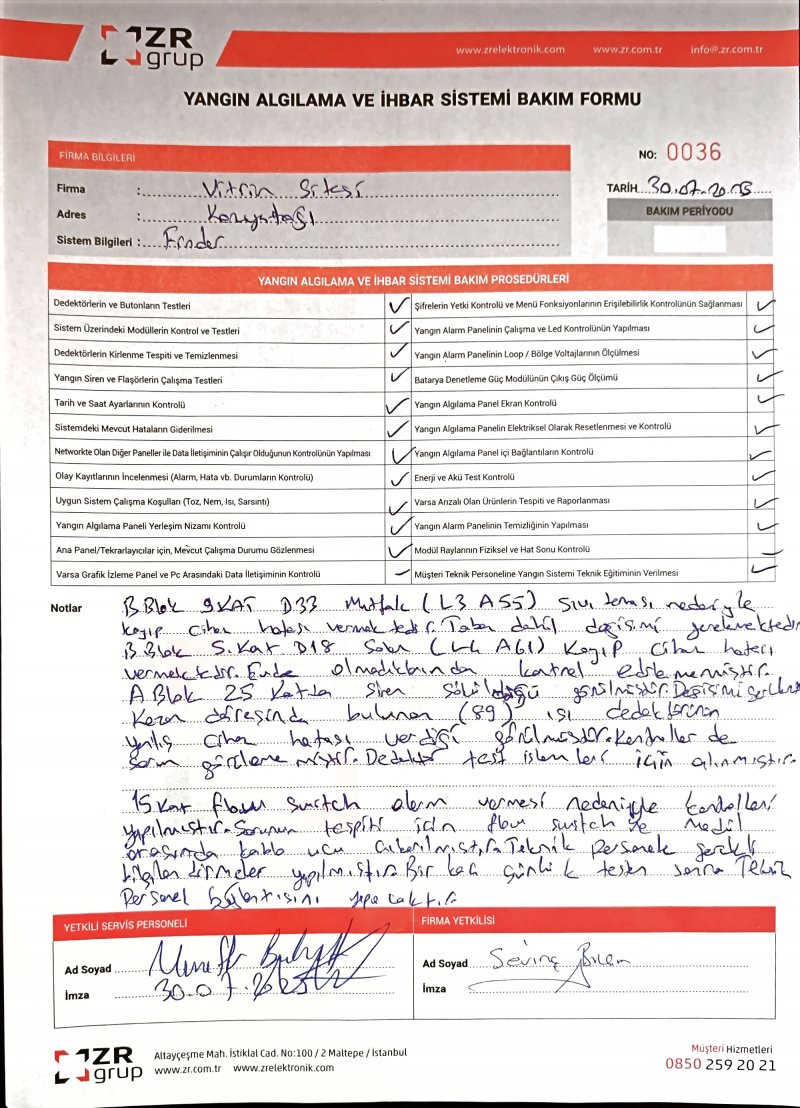 ZR grup
www.zrelektronik.com www.zr.com.tr info@.zr.com.tr
YANGIN ALGILAMA VE İHBAR SİSTEMİ BAKIM FORMU
FİRMA BİLGİLERİ
NO: 0036
Firma : Vitrin Sitesi
TARİH 30.07.2025
Adres : Kozyatağı
BAKIM PERİYODU
Sistem Bilgileri :
YANGIN ALGILAMA VE İHBAR SİSTEMİ BAKIM PROSEDÜRLERİ
Dedektörlerin ve Butonların Testleri ✓ Şifrelerin Yetki Kontrolü ve Menü Fonksiyonlarının Erişilebilirlik Kontrolünün Sağlanması ✓
Sistem Üzerindeki Modüllerin Kontrol ve Testleri ✓ Yangın Alarm Panelinin Çalışma ve Led Kontrolünün Yapılması ✓
Dedektörlerin Kirlenme Tespiti ve Temizlenmesi ✓ Yangın Alarm Panelinin Loop / Bölge Voltajlarının Ölçülmesi ✓
Yangın Siren ve Flaşörlerin Çalışma Testleri ✓ Batarya Denetleme Güç Modülünün Çıkış Güç Ölçümü ✓
Tarih ve Saat Ayarlarının Kontrolü ✓ Yangın Algılama Panel Ekran Kontrolü ✓
Sistemdeki Mevcut Hataların Giderilmesi ✓ Yangın Algılama Panelin Elektriksel Olarak Resetlenmesi ve Kontrolü ✓
Networkte Olan Diğer Paneller ile Data İletişiminin Çalışır Olduğunun Kontrolünün Yapılması ✓ Yangın Algılama Panel içi Bağlantıların Kontrolü ✓
Olay Kayıtlarının İncelenmesi (Alarm, Hata vb. Durumların Kontrolü) ✓ Enerji ve Akü Test Kontrolü ✓
Uygun Sistem Çalışma Koşulları (Toz, Nem, Isı, Sarsıntı) ✓ Varsa Arızalı Olan Ürünlerin Tespiti ve Raporlanması ✓
Yangın Algılama Paneli Yerleşim Nizamı Kontrolü ✓ Yangın Alarm Panelinin Temizliğinin Yapılması ✓
Ana Panel/Tekrarlayıcılar için, Mevcut Çalışma Durumu Gözlenmesi ✓ Modül Raylarının Fiziksel ve Hat Sonu Kontrolü –
Varsa Grafik İzleme Panel ve Pc Arasındaki Data İletişiminin Kontrolü – Müşteri Teknik Personeline Yangın Sistemi Teknik Eğitiminin Verilmesi ✓
Notlar B.Blok 9 KAT D33 Mutfak (L3 A55) Sıvı teması nedeniyle
kayıp cihaz hatası vermektedir. Taban dahil değişimi gerekmektedir
B.Blok 5.Kat D18 Salon (L4 A61) Kayıp cihaz hatası
vermektedir. Evde olmadıklarından kontrol edilememiştir.
A.Blok 25 Katda Siren söküldüğü görülmüştür. Değişimi
Kazan dairesinde bulunan (89) ısı dedektörünün
yanlış cihaz hatası verdiği görülmüştür. Kontroller de
sorun görülememiştir. Dedektör test işlemleri için alınmıştır.
15 Kat flow switch alarm vermesi nedeniyle kontrolleri
yapılmıştır. Sorunun tespiti için flow switch ve modül
arasında kablo ucu çıkarılmıştır. Teknik personele gerekli
bilgilendirmeler yapılmıştır. Bir kaç günlük testen sonra Teknik
Personel bağlantısını yapacaktır.
YETKİLİ SERVİS PERSONELİ FİRMA YETKİLİSİ
Ad Soyad
Ad Soyad Sevinç
İmza 30.07.2025
İmza
ZR grup
Altayçeşme Mah. İstiklal Cad. No:100 / 2 Maltepe / İstanbul
www.zr.com.tr www.zrelektronik.com
Müşteri Hizmetleri
0850 259 20 21